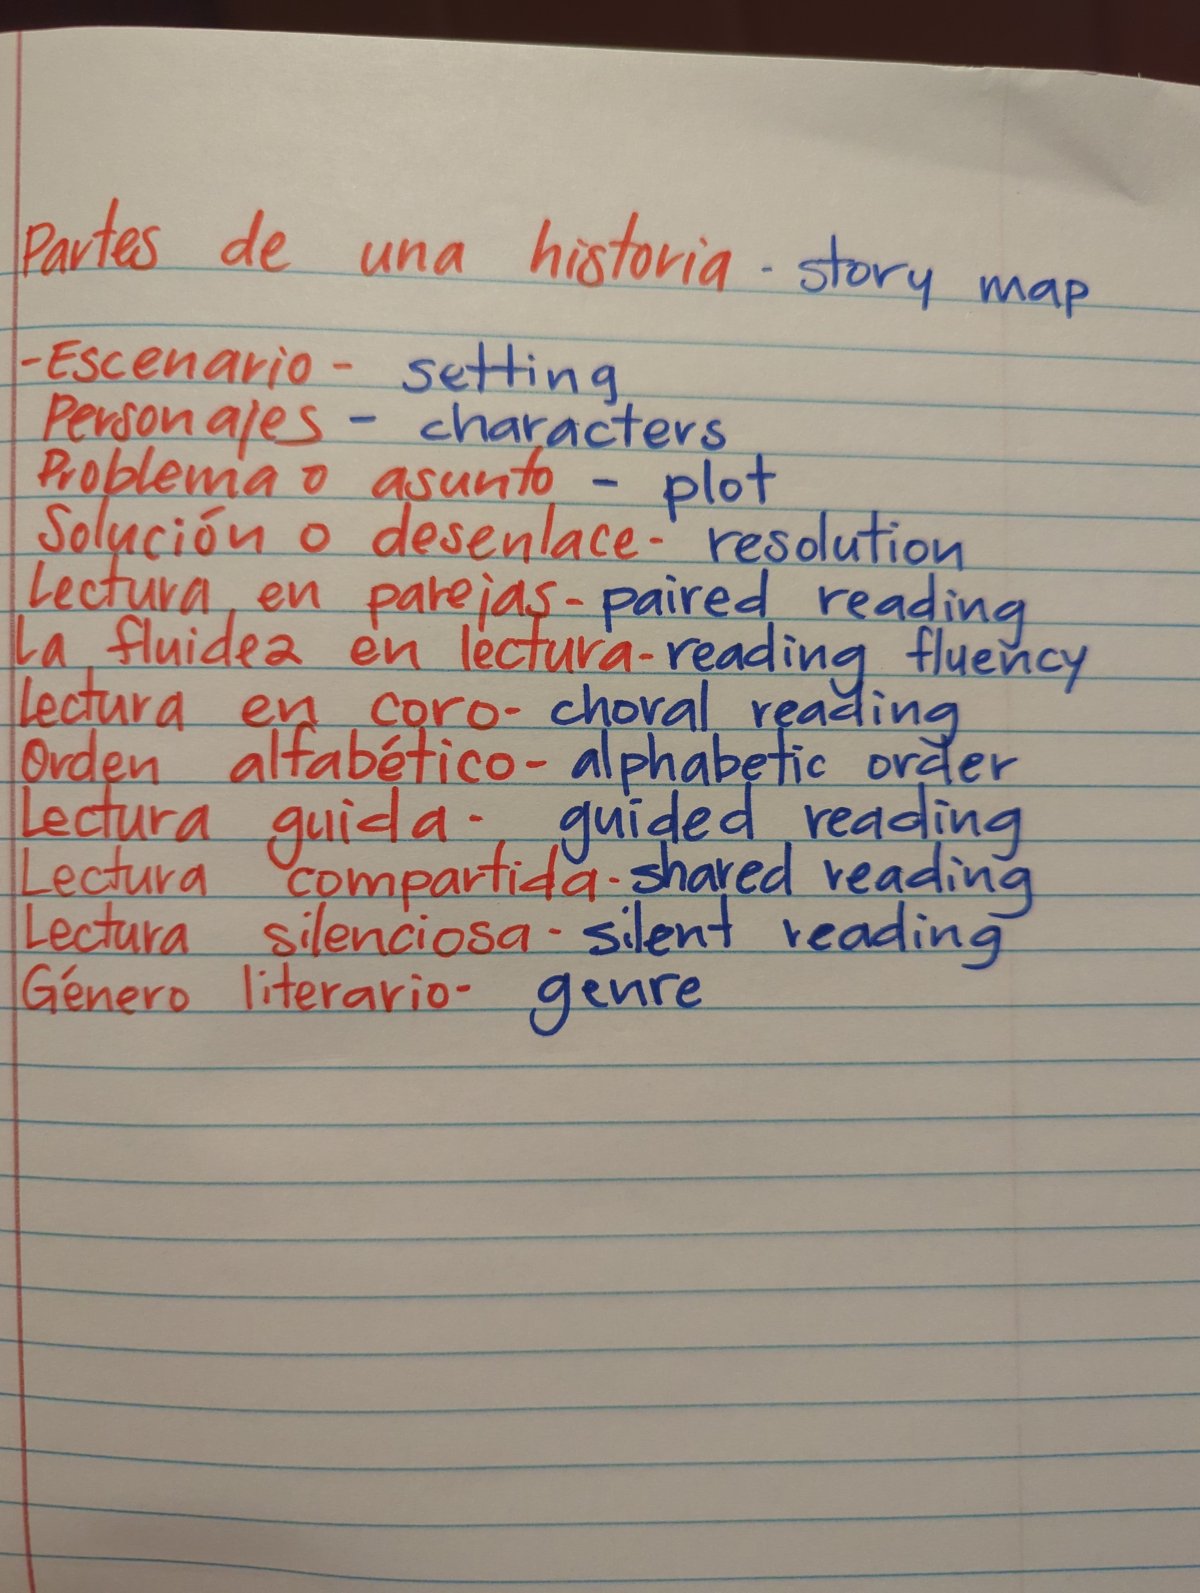 Partes de una historia - story map
- Escenario - setting
Personajes - characters
Problema o asunto - plot
Solución o desenlace - resolution
Lectura en parejas - paired reading
La fluidez en lectura - reading fluency
Lectura en coro - choral reading
Orden alfabético - alphabetic order
Lectura guida - guided reading
Lectura compartida - shared reading
Lectura silenciosa - silent reading
Género literario - genre